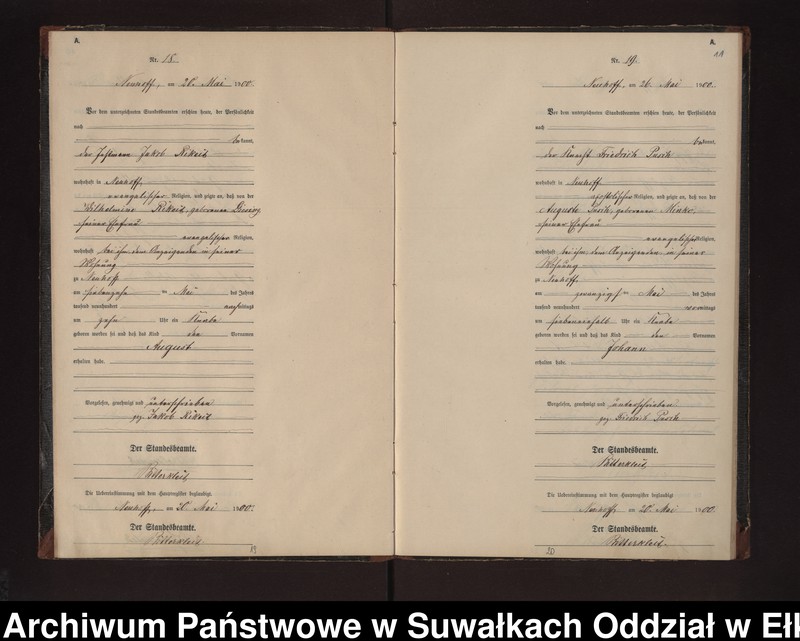 A.
Nr. 18.
Neuhoff, am 20. Mai 1900.
Vor dem unterzeichneten Standesbeamten erschien heute, der Persönlichkeit
nach
bekannt,
der Jakob Rikeit
wohnhaft in Neuhoff
evangelischer Religion, und zeigte an, daß von der
Wilhelmine Rikeit, geborenen
seiner Ehefrau
evangelischer Religion,
wohnhaft bei ihm, dem Anzeigenden in seiner
Wohnung
zu Neuhoff
am siebenzehn ten Mai des Jahres
tausend neunhundert nachmittags
um zehn Uhr ein Knabe
geboren worden sei und daß das Kind den Vornamen
August
erhalten habe.
Vorgelesen, genehmigt und unterschrieben
gez. Jakob Rikeit
Der Standesbeamte.
Die Uebereinstimmung mit dem Hauptregister beglaubigt
Neuhoff, am Mai 1900.
Der Standesbeamte.
19
A.
Nr. 19.
Neuhoff, am 26. Mai 1900.
Vor dem unterzeichneten Standesbeamten erschien heute, der Persönlichkeit
nach
bekannt,
der Knecht Friedrich
wohnhaft in Neuhoff
apostolischer Religion, und zeigte an, daß von der
Auguste geborenen Minko,
seiner Ehefrau
evangelischer Religion,
wohnhaft bei ihm, dem Anzeigenden in seiner
Wohnung
zu Neuhoff
am zwanzigsten Mai des Jahres
tausend neunhundert vormittags
um siebeneinhalb Uhr ein Knabe
geboren worden sei und daß das Kind den Vornamen
Johann
erhalten habe.
Vorgelesen, genehmigt und unterschrieben
gez.
Der Standesbeamte.
Die Uebereinstimmung mit dem Hauptregister beglaubigt
Neuhoff, am Mai 1900.
Der Standesbeamte.
20
Archiwum Państwowe w Suwałkach Oddział w Eł